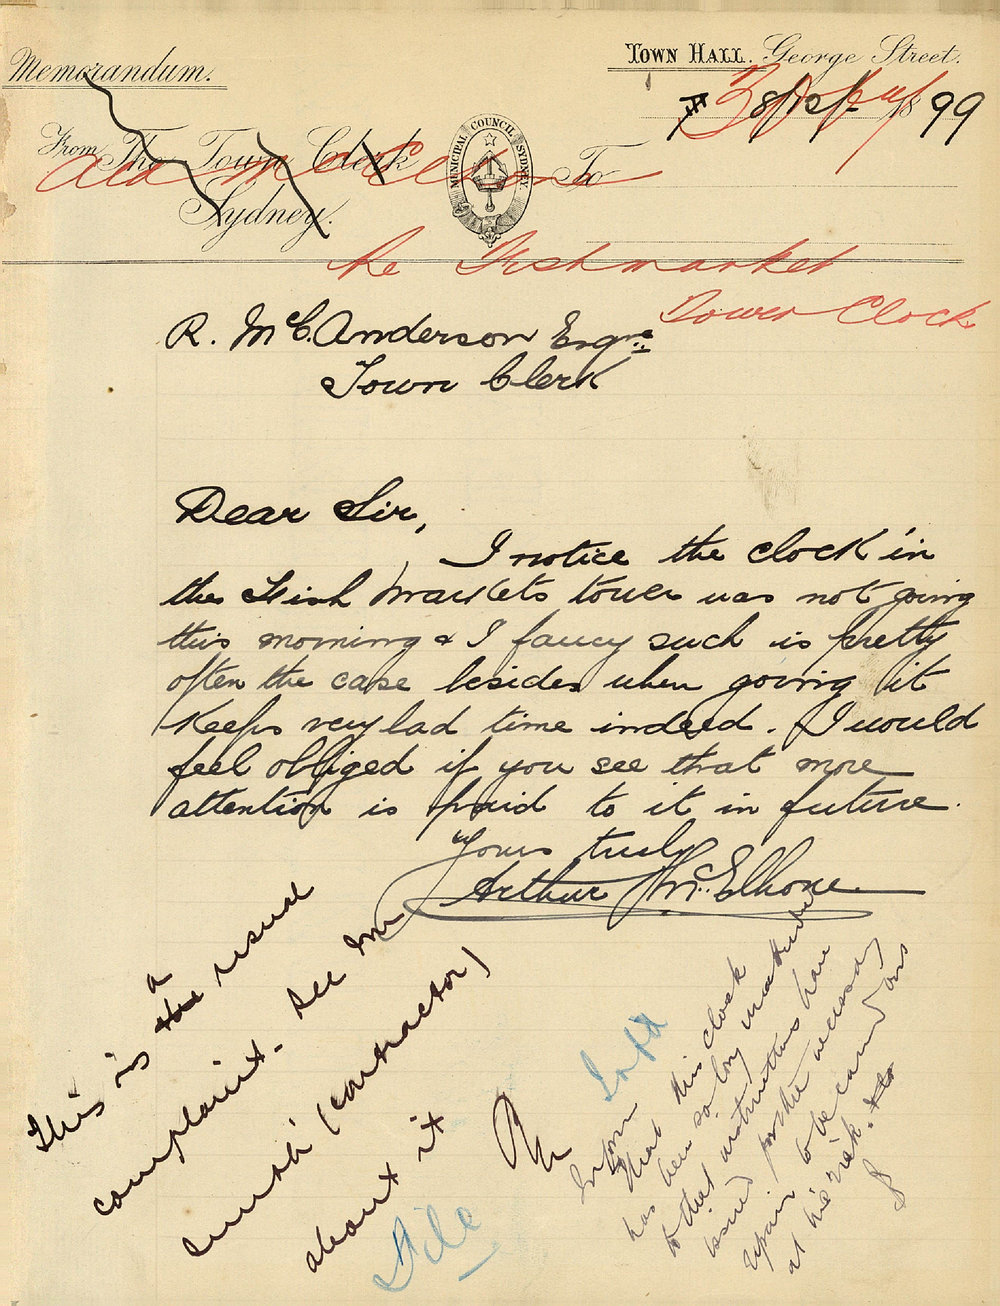 Memorandum.
TOWN HALL. George Street.
8/12/ 1899
From The Town Clerk
To
Sydney.
MUNICIPAL COUNCIL SYDNEY
Ald McElhone
Re Fishmarket
Tower Clock
R. McC. Anderson Esqre
Town Clerk
Dear Sir,
I notice the clock in
the Fish Markets tower was not going
this morning & I fancy such is pretty
often the case besides when going it
keeps very bad time indeed. I would
feel obliged if you see that more
attention is paid to it in future.
Yours truly
Arthur McElhone
This is the a usual
complaint. See Mr
(contractor)
about it
File
Inform
that this clock
has been so long
to that instructions have
issued for the necessary
to be carried out
at his risk.